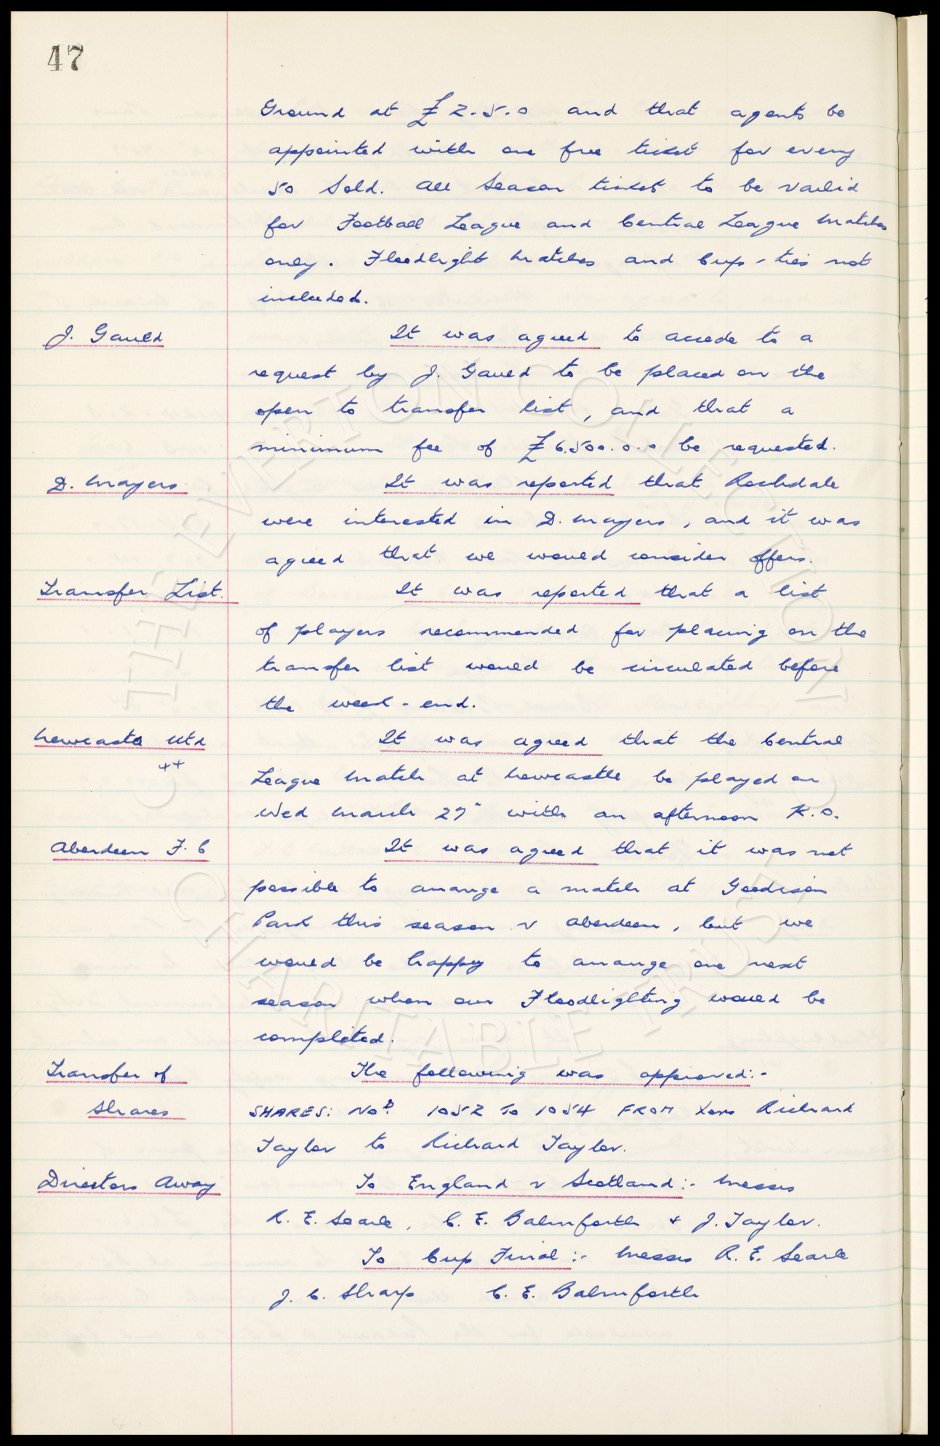 47
Ground at £2.5.0 and that agents be
appointed with one free ticket for every
50 sold. All Season tickets to be valid
for Football League and Central League matches
only. Floodlight matches and Cup-ties not
included.
J. Gauld It was agreed to accede to a
request by J. Gauld to be placed on the
open to transfer list, and that a
minimum fee of £6.500.0.0 be requested.
D. Mayers It was reported that Rochdale
were interested in D. Mayers, and it was
agreed that we would consider offers.
Transfer List. It was reported that a list
of players recommended for placing on the
transfer list would be circulated before
the week-end.
Newcastle Utd It was agreed that the Central
League match at Newcastle be played on
Wed March 27" with an afternoon K.O.
Aberdeen F.C It was agreed that it was not
possible to arrange a match at Goodison
Park this season v Aberdeen, but we
would be happy to arrange one next
season when our Floodlighting would be
completed.
Transfer of The following was approved:-
Shares SHARES: Nos 1052 To 1054 FROM Xors Richard
Taylor to Richard Taylor.
Directors Away To England v Scotland:- Messrs
R. E. Searle, C. E. Balmforth + J. Taylor.
To Cup Final:- Messrs R. E. Searle
J. C. Sharp C. E. Balmforth
THE EVERTON COLLECTION
CHARITABLE TRUST